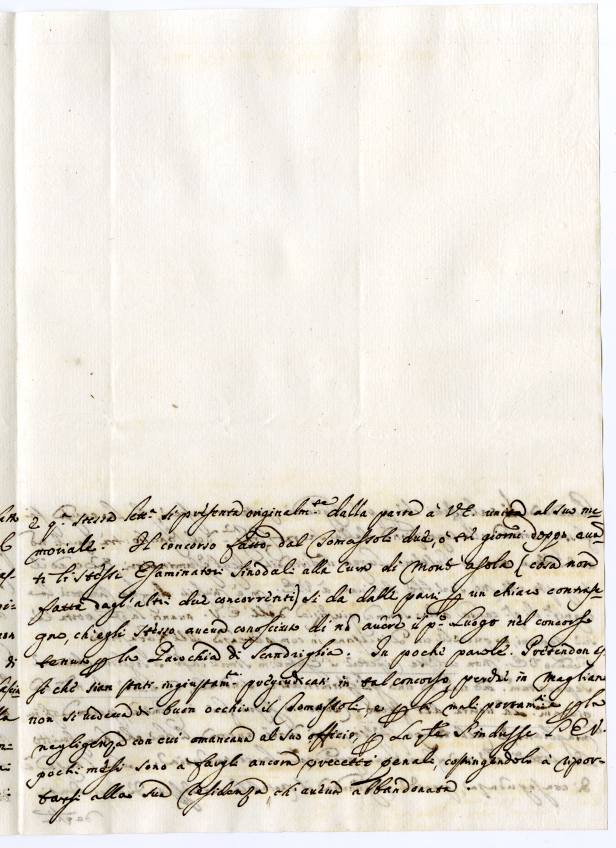 e q.ª stessa lett.ª si presenta originalm.te dalla parte à V.E. unita al suo me
moriale. Il concorso fatto dal Tomassoli due, o trè giorni doppo, auan
ti li stessi Esaminatori Sinodali alla Cura di Mont'asola (cosa non
fatta dagl'altri due concorrenti) si dà dalle parti un chiaro contrase
gno, ch'egli stesso aueua conosciuto di nō auere il p.º Luogo nel concorso
tenuto la Parochia di Scandriglia. In pochi parole. Pretendon es
si che sian stati ingiustam.te pregiudicati in tal concorso, perche in Magliano
non si uedeua di buon occhio il Tomassoli, e ti mali portam.ti
negligenza con cui mancaua al suo officio, V.
pochi mesi sono a fargli ancora precetti penali, costringendolo à ripor-
tarsi alla sua Residenza, ch'aueua abbandonata